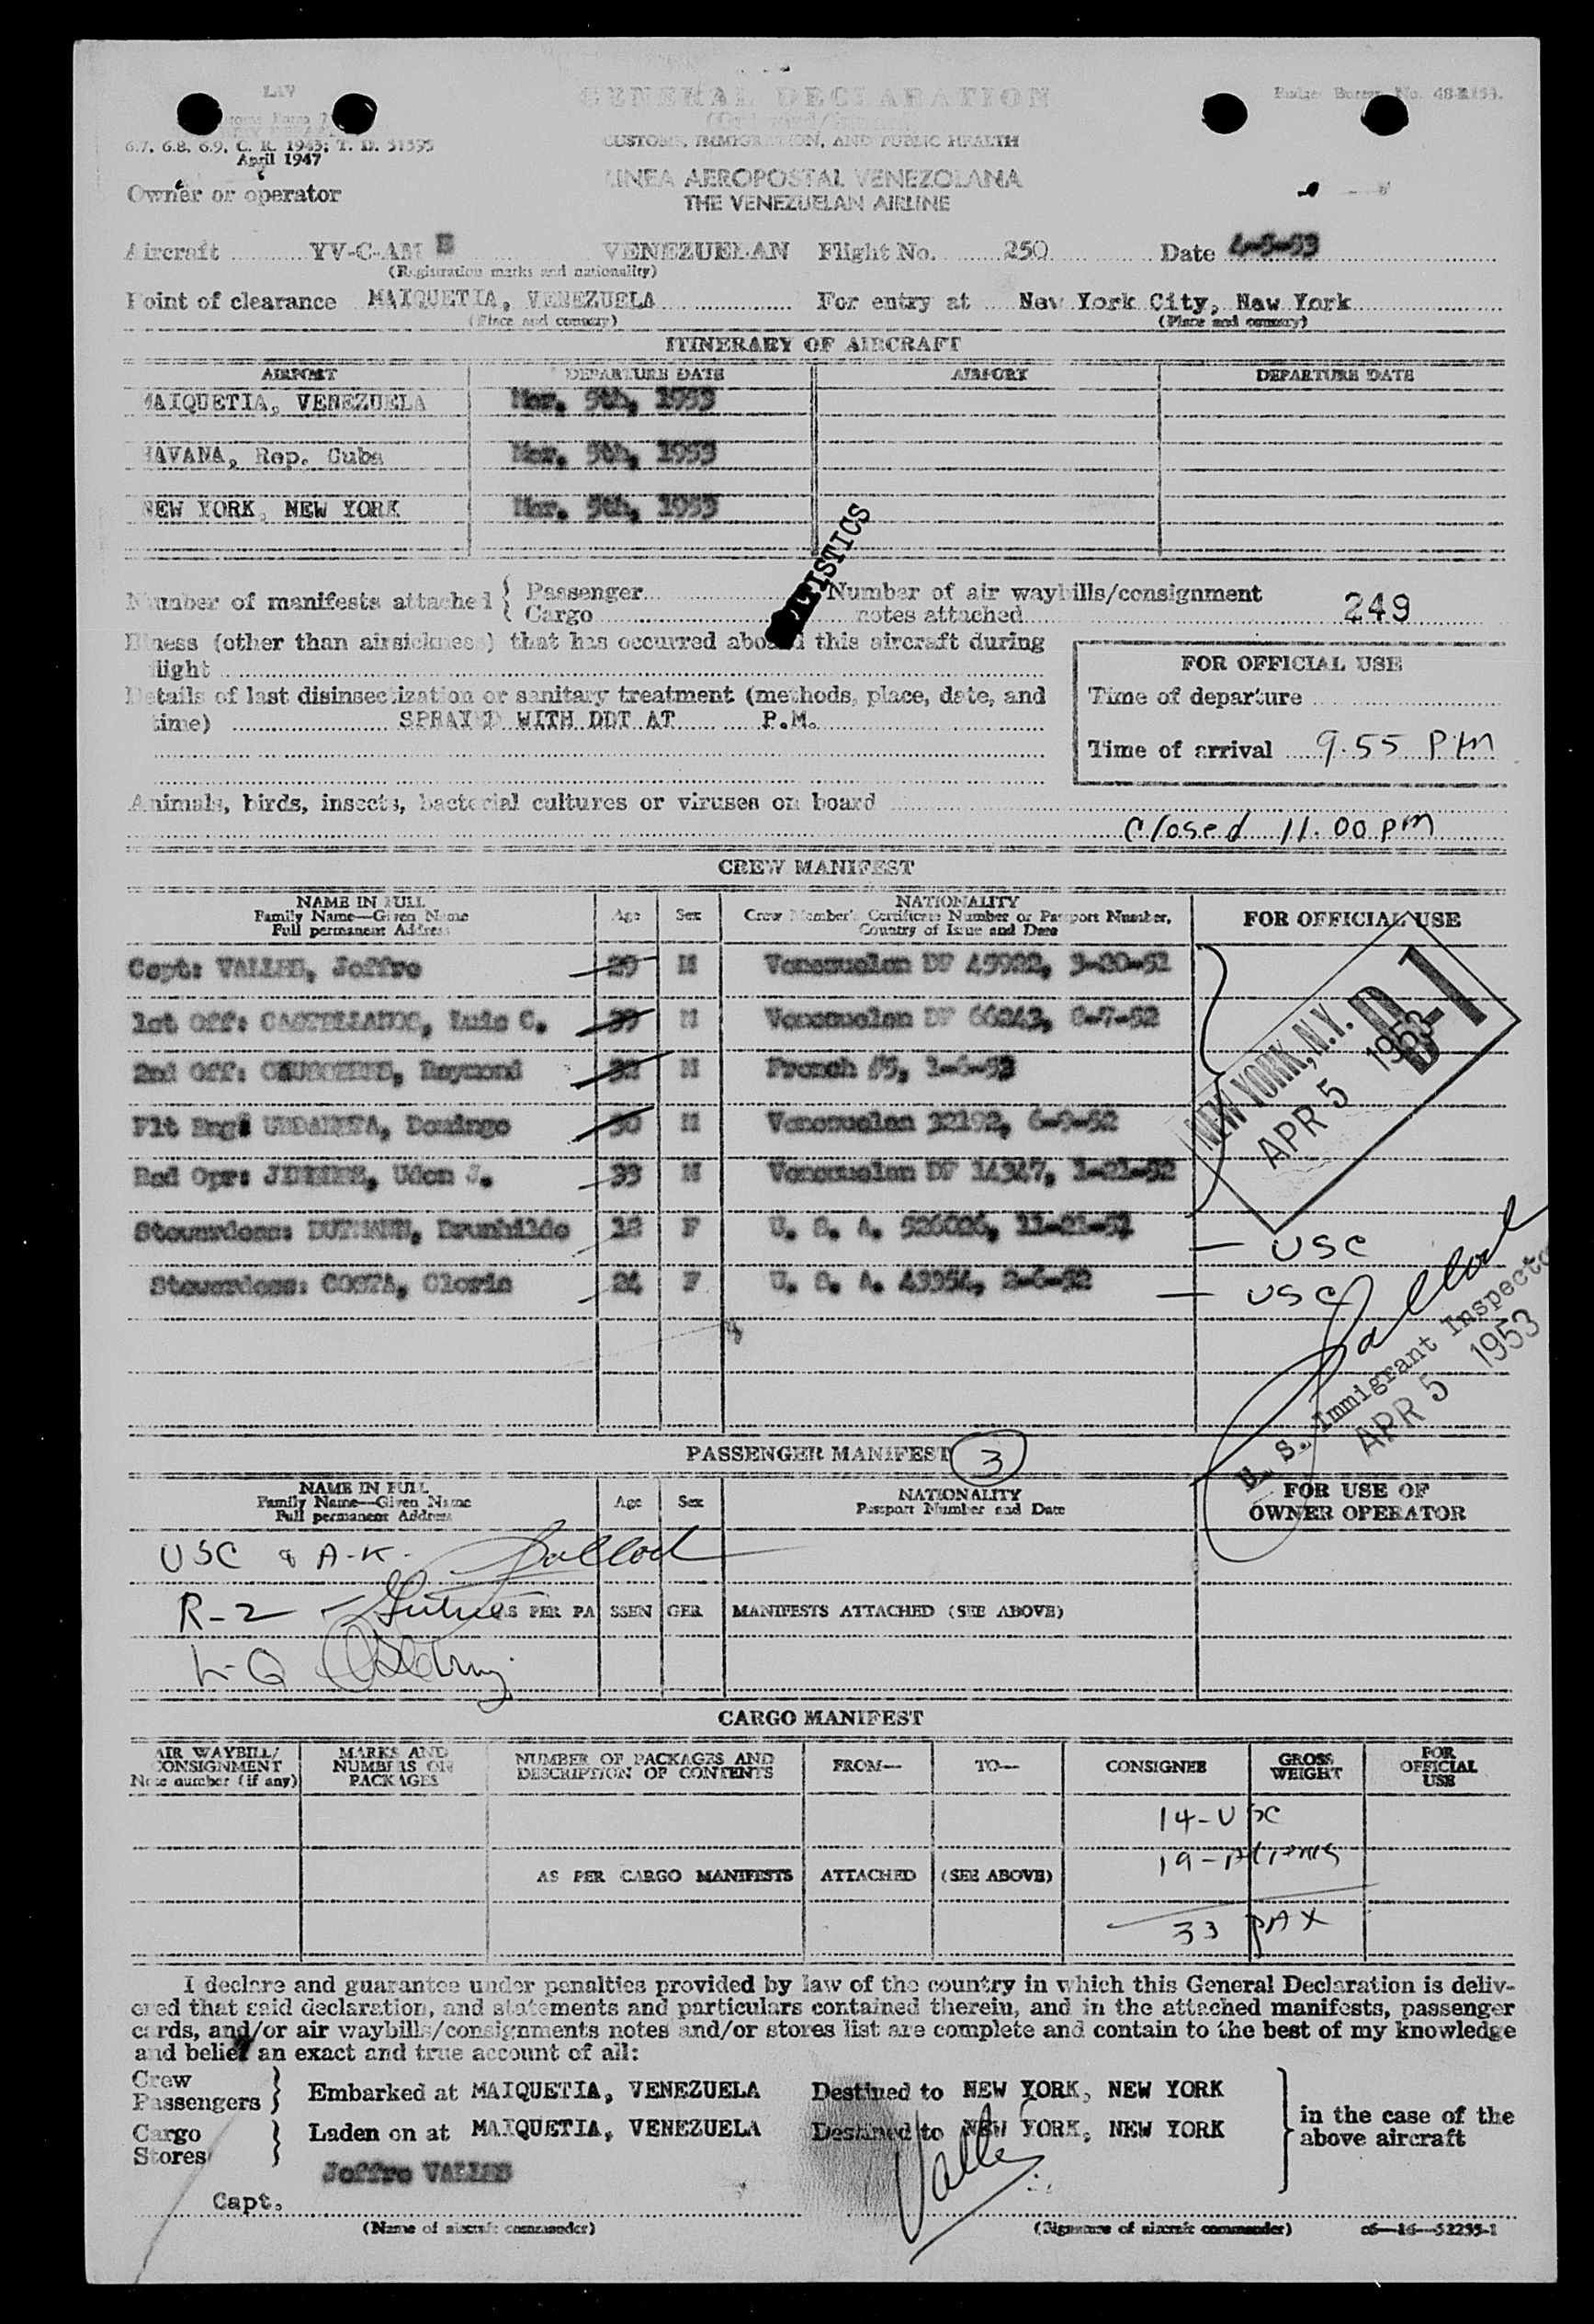 LAV
GENERAL DECLARATION
6.7, 6.8, 6.9, C. R. 1943; T. D. 51595
April 1947
CUSTOMS, IMMIGRATION, AND PUBLIC HEALTH
LINEA AEROPOSTAL VENEZOLANA
THE VENEZUELAN AIRLINE
Owner or operator
Aircraft YV-C-AM VENEZUELAN Flight No. 250 Date 4-5-53
(Registration marks and nationality)
Point of clearance MAIQUETIA, VENEZUELA For entry at New York City, New York
(Place and country) (Place and country)
ITINERARY OF AIRCRAFT
AIRPORT DEPARTURE DATE AIRPORT DEPARTURE DATE
MAIQUETIA, VENEZUELA Mar. 5th, 1953
HAVANA, Rep. Cuba Mar. 5th, 1953
NEW YORK, NEW YORK Mar. 5th, 1953
STATISTICS
Number of manifests attached { Passenger
Cargo
Number of air waybills/consignment
notes attached 249
Illness (other than airsickness) that has occurred aboard this aircraft during
flight
Details of last disinsectization or sanitary treatment (methods, place, date, and
time) SPRAYED WITH DDT AT P.M.
FOR OFFICIAL USE
Time of departure
Time of arrival 9.55 PM
Animals, birds, insects, bacterial cultures or viruses on board
Closed 11.00 pm
CREW MANIFEST
NAME IN FULL
Family Name—Given Name
Full permanent Address
Age Sex
NATIONALITY
Crew Member's Certificate Number or Passport Number,
Country of Issue and Date
FOR OFFICIAL USE
Capt: VALLES, Joffre 29 M Venezuelan DF 45922, 3-20-51
1st Off: CASTELLANOS, Luis C. 39 M Venezuelan DF 66243, 8-7-52
2nd Off: Raymond 32 M French
Flt Eng: URDANETA, Domingo 30 M Venezuelan 32192, 6-9-52
Rad Opr: JIMENEZ, Udon J. 33 M Venezuelan DF 14347, 1-21-52
Stewardess: Brunhilde F U. S. A. 526026, 11-21-51
Stewardess: COSTA, Gloria 24 F U. S. A. 43954, 2-6-52
NEW YORK, N.Y. D-1
APR 5 1953
USC
USC
U. S. Immigrant Inspector
APR 5 1953
PASSENGER MANIFEST 3
NAME IN FULL
Family Name—Given Name
Full permanent Address
Age Sex
NATIONALITY
Passport Number and Date
FOR USE OF
OWNER OPERATOR
USC & A-K.
R-2 AS PER PASSENGER MANIFESTS ATTACHED (SEE ABOVE)
CARGO MANIFEST
AIR WAYBILL/
CONSIGNMENT
Note number (if any)
MARKS AND
NUMBERS ON
PACKAGES
NUMBER OF PACKAGES AND
DESCRIPTION OF CONTENTS
FROM— TO— CONSIGNEE
GROSS
WEIGHT
FOR
OFFICIAL
USE
14-USC
19-Aliens
AS PER CARGO MANIFESTS ATTACHED (SEE ABOVE)
33 PAX
I declare and guarantee under penalties provided by law of the country in which this General Declaration is deliv-
ered that said declaration, and statements and particulars contained therein, and in the attached manifests, passenger
cards, and/or air waybills/consignments notes and/or stores list are complete and contain to the best of my knowledge
and belief an exact and true account of all:
Crew
Passengers } Embarked at MAIQUETIA, VENEZUELA Destined to NEW YORK, NEW YORK
Cargo
Stores } Laden on at MAIQUETIA, VENEZUELA Destined to NEW YORK, NEW YORK
in the case of the
above aircraft
Joffre VALLES
Capt.
(Name of aircraft commander) (Signature of aircraft commander) c6—16—52255-1